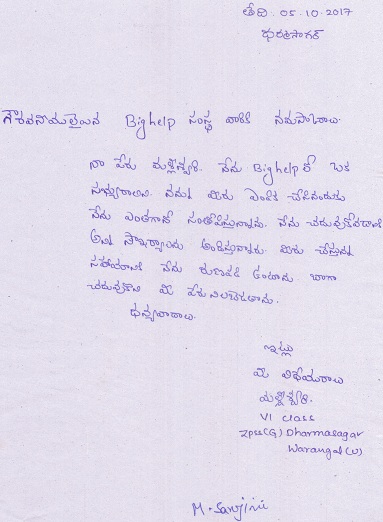 తేది. 05.10.2017
ధర్మసాగర్
గౌరవనీయులైన Bighelp సంస్థ వారికి నమస్కారాలు.
నా పేరు నేను Bighelp లో ఒక
సభ్యురాలిని. నన్ను మీరు ఎంపిక చేసినందుకు
నేను ఎంతగానో సంతోషిస్తున్నాను. నేను
అన్ని సౌకర్యాలను అందిస్తున్నారు. మీరు చేస్తున్న
సహాయానికి నేను రుణపడి ఉంటాను. బాగా
చదువుకొని మీ పేరు నిలబెడతాను.
ధన్యవాదాలు.
ఇట్లు
మీ విధేయురాలు
VI class
ZPSS(G) Dharmasagar
Warangal (U)
M. Sarojini